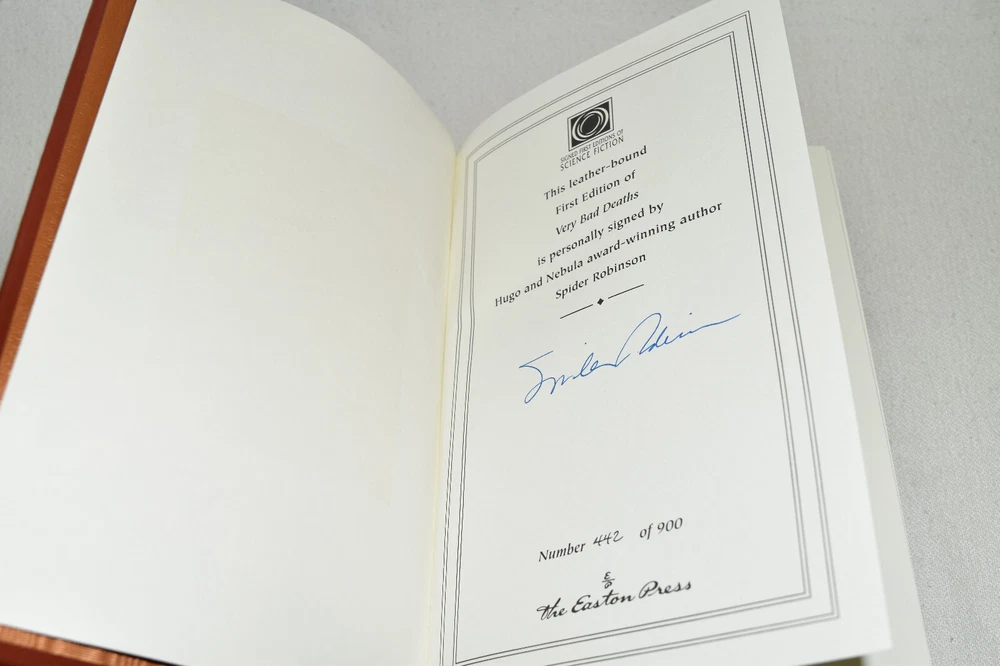 SIGNED FIRST EDITIONS OF
SCIENCE FICTION
This leather-bound
First Edition of
Very Bad Deaths
is personally signed by
Hugo and Nebula award-winning author
Spider Robinson
Spider Robinson
Number 442 of 900
The Easton Press